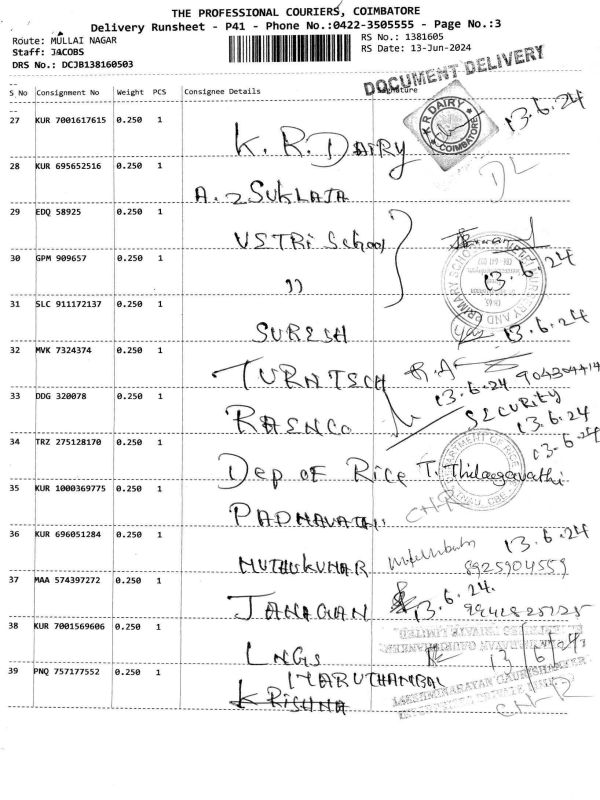 THE PROFESSIONAL COURIERS, COIMBATORE
Delivery Runsheet - P41 - Phone No.:0422-3505555 - Page No.:3
Route: MULLAI NAGAR
RS No.: 1381605
Staff: JACOBS
RS Date: 13-Jun-2024
DRS No.: DCJB138160503
DOCUMENT DELIVERY
S No Consignment No Weight PCS Consignee Details Signature
27 KUR 7001617615 0.250 1 K. R. DAIRY 13.6.24
K R DAIRY
COIMBATORE
28 KUR 695652516 0.250 1 DL
29 EDQ 58925 0.250 1 School
30 GPM 909657 0.250 1 13.6.24
31 SLC 911172137 0.250 1 SURESH 13.6.24
32 MVK 7324374 0.250 1 R.A 13.6.24
33 DDG 320078 0.250 1 SECURITY
13.6.24
34 TRZ 275128170 0.250 1 Dep of Rice T. Thilagavathi 13.6.24
35 KUR 1000369775 0.250 1
36 KUR 696051284 0.250 1 MUTHUKUMAR 13.6.24
8925904559
37 MAA 574397272 0.250 1 13.6.24.
38 KUR 7001569606 0.250 1 LNGS 13/6/24
39 PNQ 757177552 0.250 1 MARUTHAMBAL
KRISHNA